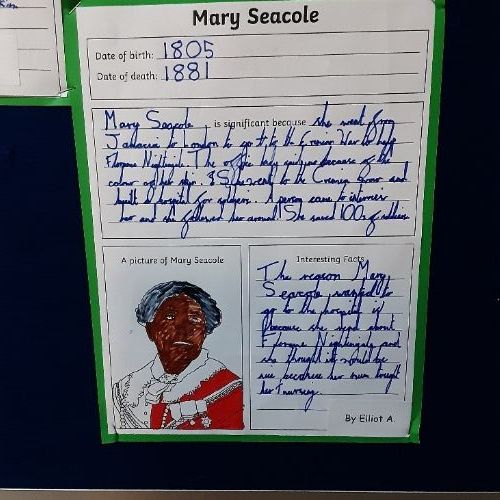 Mary Seacole
Date of birth: 1805
Date of death: 1881
Mary Seacole is significant because she went from
Jamacia to London to go to the Crimean War to help
Florence Nightingale. The because of the
colour of her skin. So she went to the and
built a hospital for soldiers. A person came to
her and she followed her around. She saved 100s of
A picture of Mary Seacole
Interesting Facts
The reason Mary
Seacole wanted to
go to the hospital is
because she read about
Florence Nightingale and
she thought it would be
because her mum
her nursing.
By Elliot A.